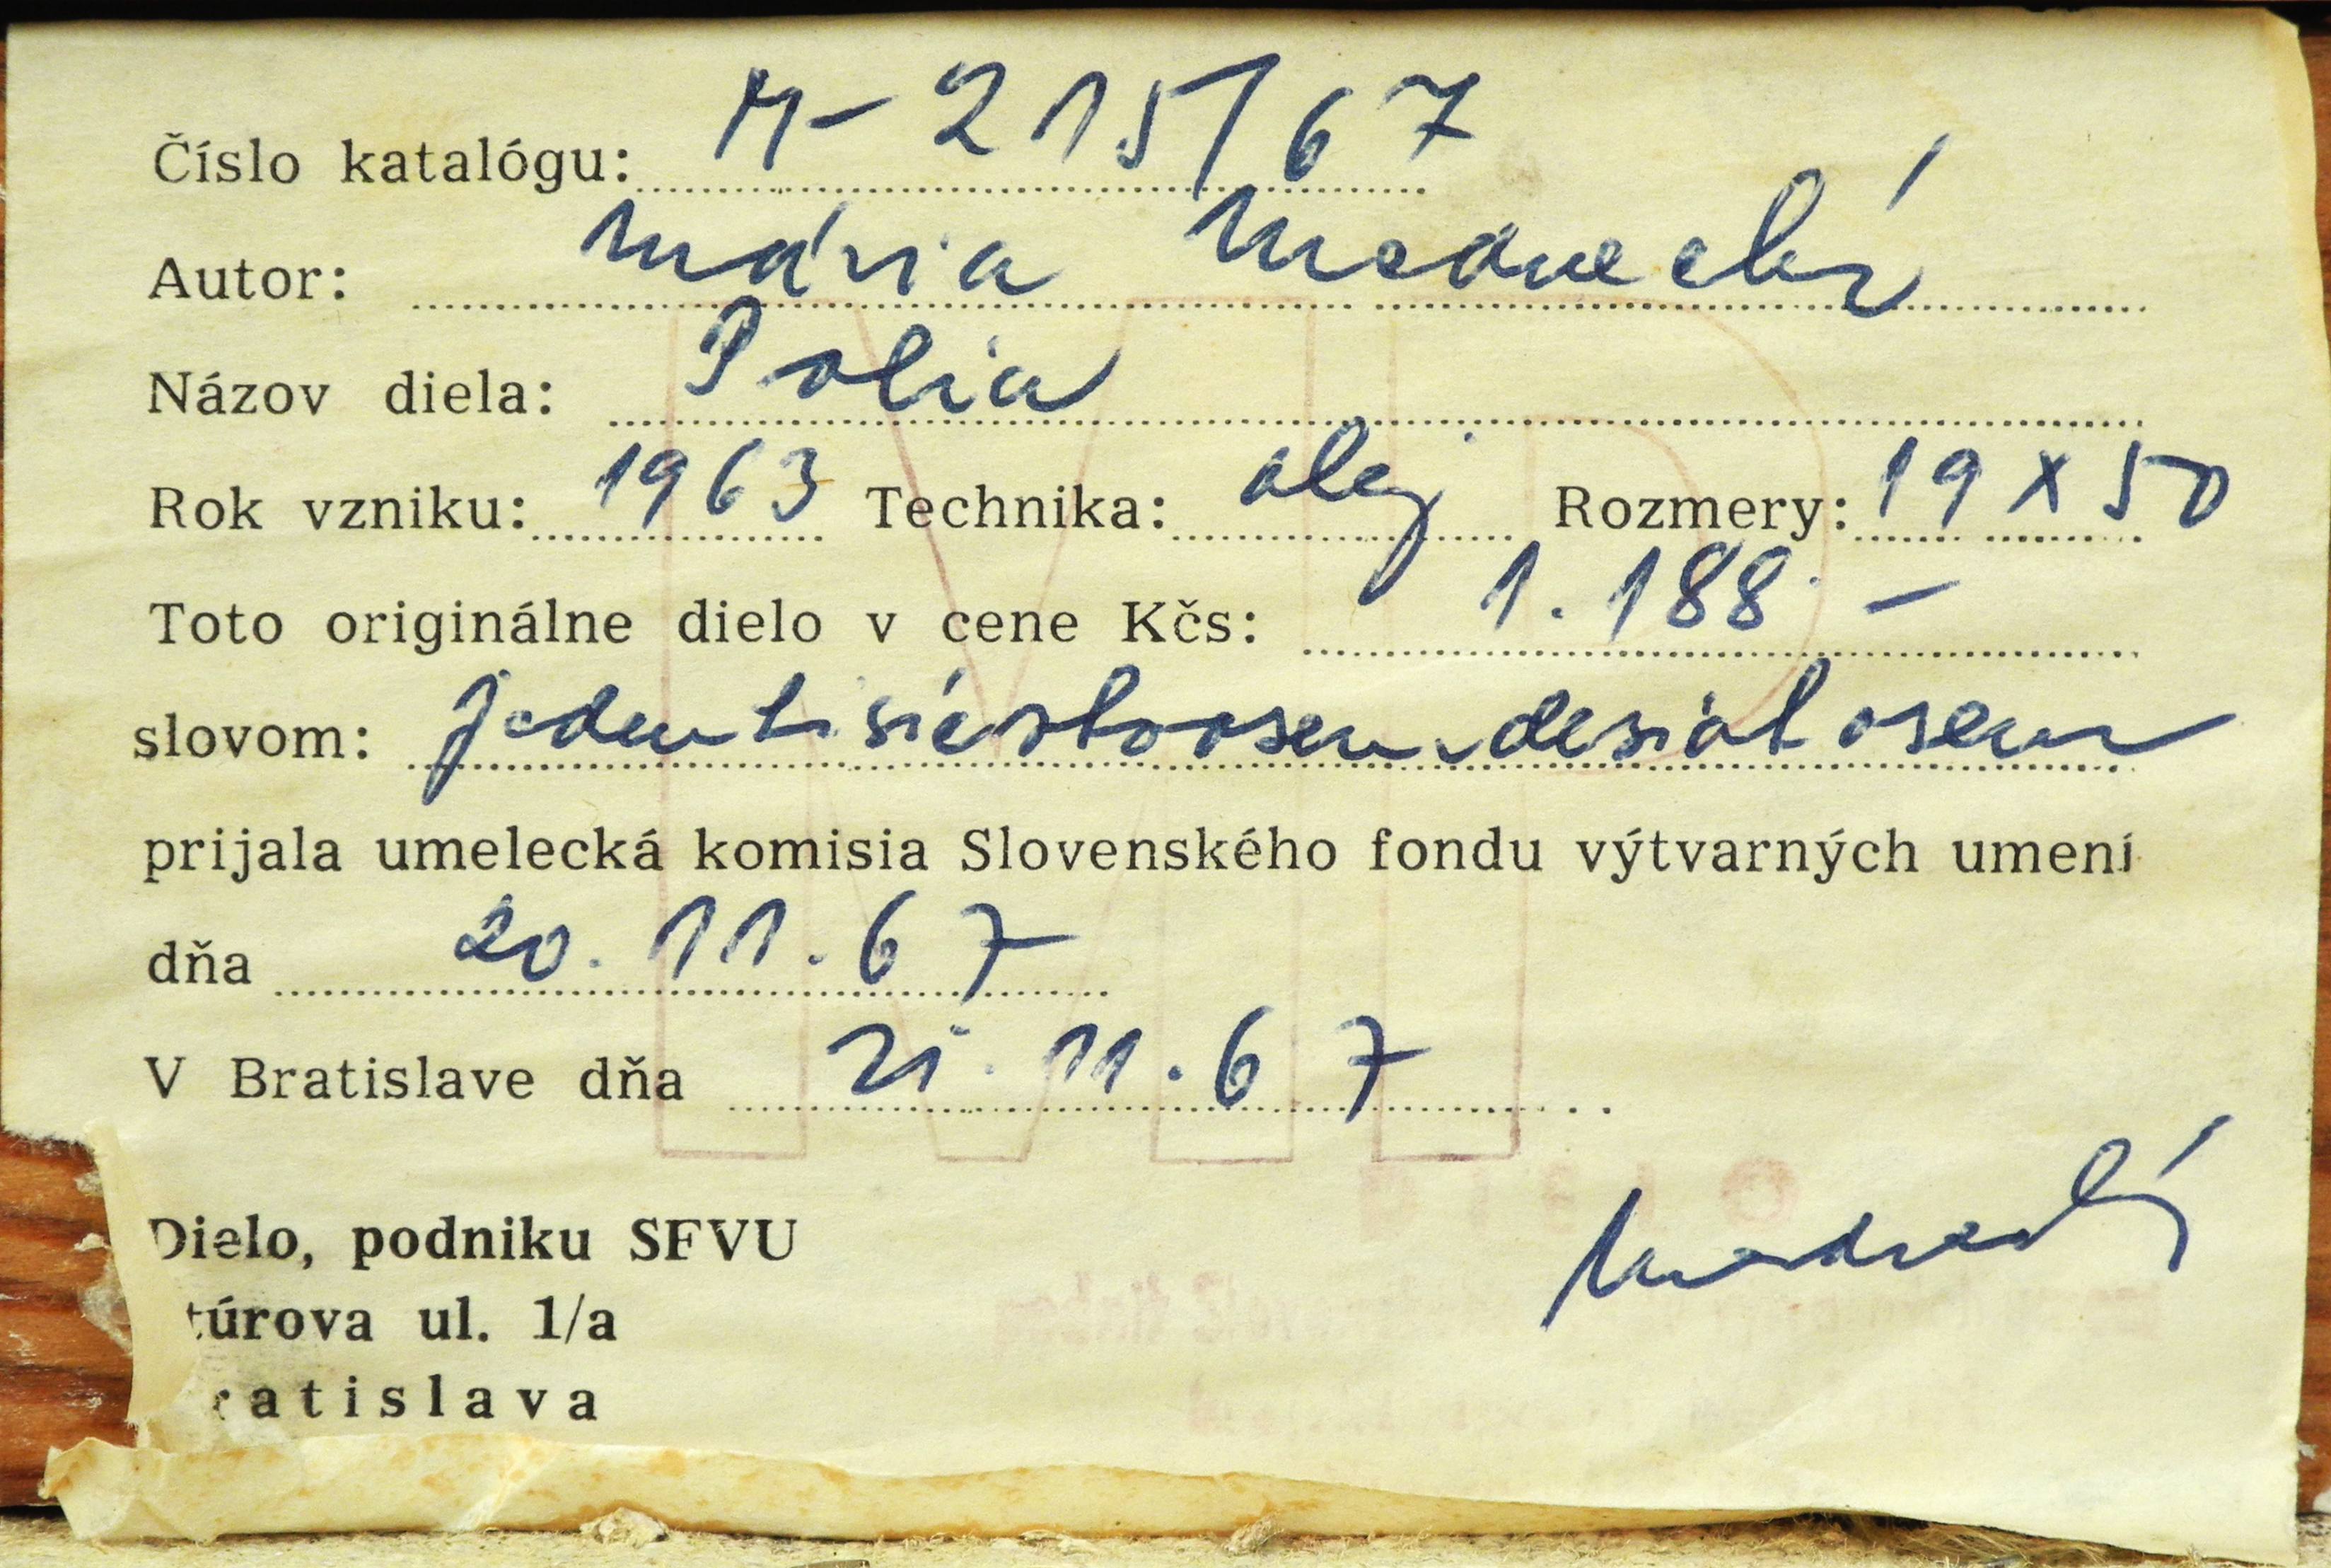 Číslo katalógu: M-215/67
Autor: Mária Medvecká
Názov diela: Polia
Rok vzniku: 1963 Technika: olej Rozmery: 19 x 50
Toto originálne dielo v cene Kčs: 1.188.-
slovom: jedentisícstoosemdesiatosem
prijala umelecká komisia Slovenského fondu výtvarných umení
dňa 20.11.67
V Bratislave dňa 21.11.67
Dielo, podniku SFVU
túrova ul. 1/a
ratislava